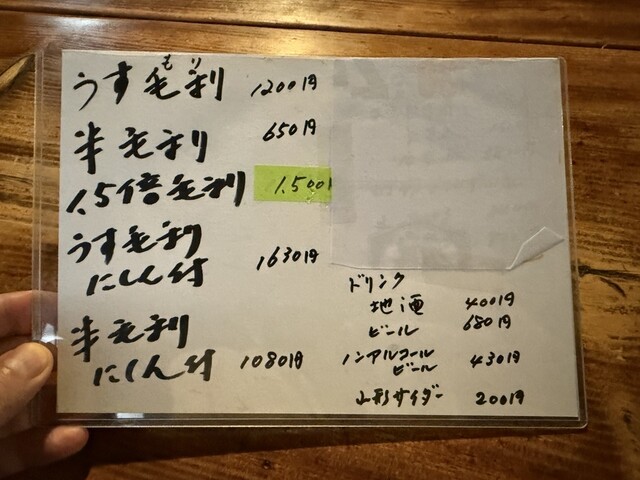 うす毛利 1200円
もり
半毛利 650円
1.5倍毛利 1,500円
うす毛利
にしん付 1630円
半毛利
にしん付 1080円
ドリンク
地酒 400円
ビール 680円
ノンアルコール
ビール 430円
山形サイダー 200円